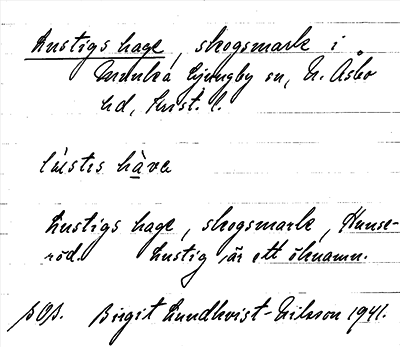 Lustigs hage, skogsmark i
Munka Ljungby sn, N. Åsbo
hd, Krist. l.
lustis hàva
Lustigs hage, skogsmark, Hunse-
röd. Lustig är ett öknamn.
Birgit Lundkvist-Nilsson 1941.